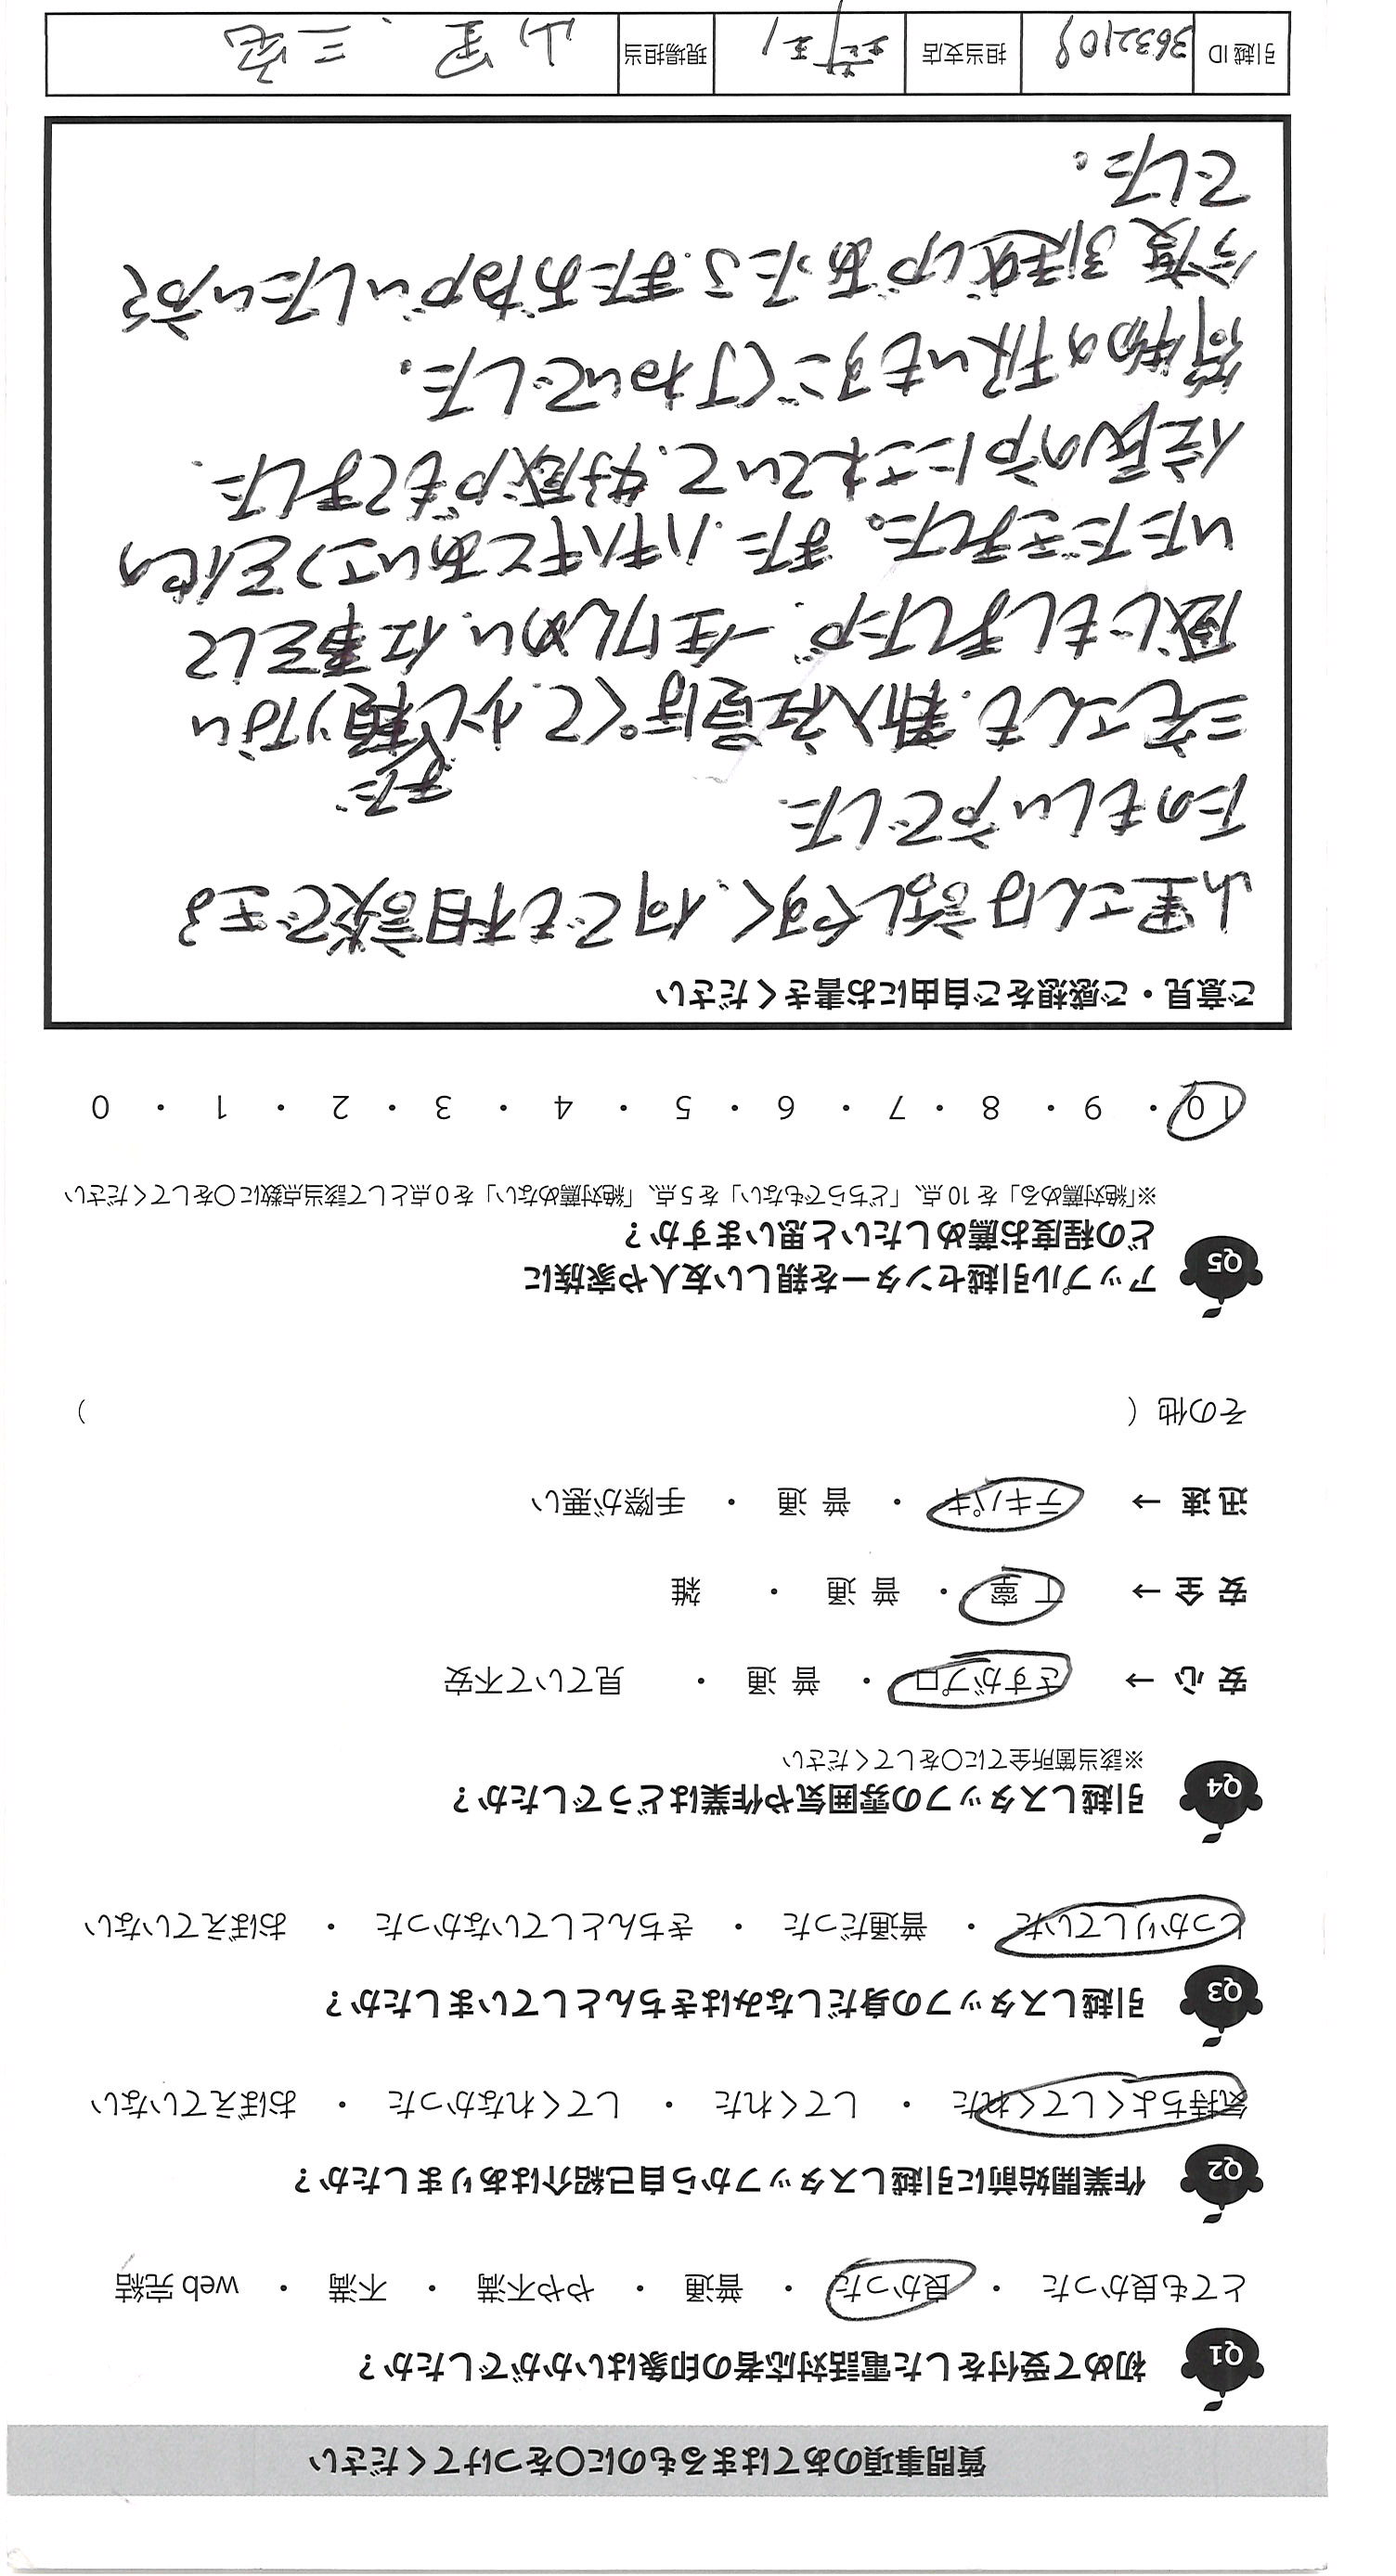 質問事項のあてはまるものに○をつけてください
Q1 初めて受付をした電話対応者の印象はいかがでしたか？
とても良かった ・ 良かった ・ 普通 ・ やや不満 ・ 不満 ・ web 完結
Q2 作業開始前に引越しスタッフから自己紹介はありましたか？
気持ちよくしてくれた ・ してくれた ・ してくれなかった ・ おぼえていない
Q3 引越しスタッフの身だしなみはきちんとしていましたか？
しっかりしていた ・ 普通だった ・ きちんとしていなかった ・ おぼえていない
Q4 引越しスタッフの雰囲気や作業はどうでしたか？
※該当箇所全てに○をしてください
安 心 → さすがプロ ・ 普 通 ・ 見ていて不安
安 全 → 丁 寧 ・ 普 通 ・ 雑
迅 速 → テキパキ ・ 普 通 ・ 手際が悪い
その他（ ）
Q5 アップル引越センターを親しい友人や家族に
どの程度お薦めしたいと思いますか？
※「絶対薦める」を 10 点、「どちらでもない」を 5 点、「絶対薦めない」を 0 点として該当点数に○をしてください
10 ・ 9 ・ 8 ・ 7 ・ 6 ・ 5 ・ 4 ・ 3 ・ 2 ・ 1 ・ 0
ご意見・ご感想をご自由にお書きください
山里さんは話しやすく、何でも相談できる
たのもしい方でした
まだ
三宅さんも、新入社員ぽくて、少し頼りない
感じもしましたが、一生けんめい、仕事をして
いただきました。また、ハキハキとあいさつを他の
住民の方にされていて、好感がもてました
荷物の扱いもすごく丁ねいでした。
今度引越しがあったら、またおねがいしたい方々
でした。
引越 ID 3632109 担当支店 埼玉1 現場担当 山里、三宅